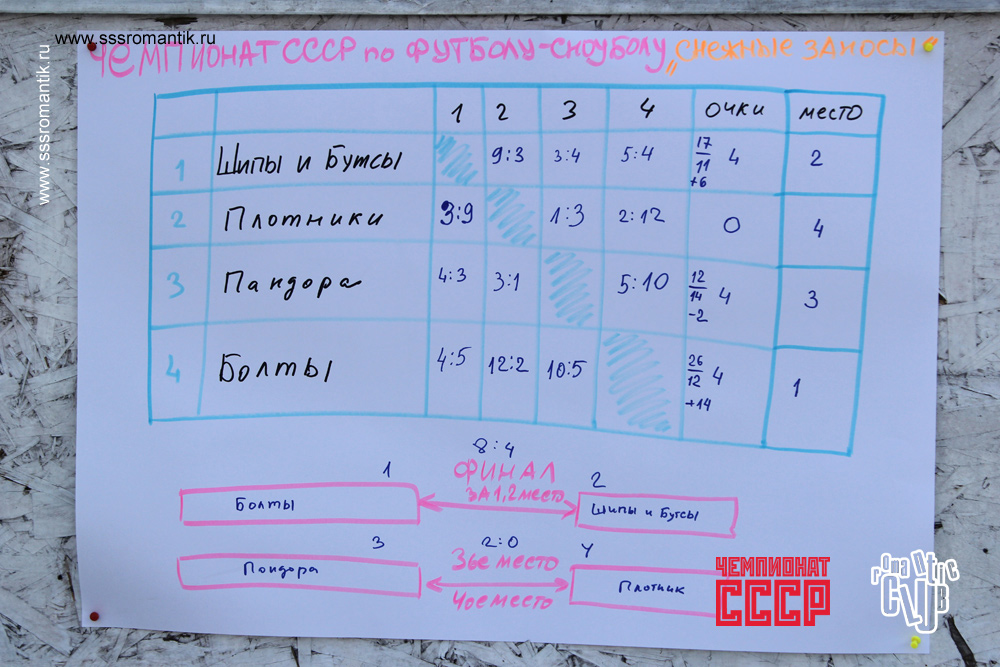 www.sssromantik.ru
www.sssromantik.ru
ЧЕМПИОНАТ СССР по ФУТБОЛУ-СНОУБОЛУ „СНЕЖНЫЕ ЗАНОСЫ"
1 2 3 4 ОЧКИ МЕСТО
1 Шипы и Бутсы 9:3 3:4 5:4 17/11 +6 4 2
2 Плотники 3:9 1:3 2:12 0 4
3 Пандора 4:3 3:1 5:10 12/14 -2 4 3
4 Болты 4:5 12:2 10:5 26/12 +14 4 1
8:4
1 ФИНАЛ 2
ЗА 1,2 место
Болты Шипы и Бутсы
3 2:0 4
3ье место
Пандора Плотник
4ое место
ЧЕМПИОНАТ
СССР
romantic
CLUB